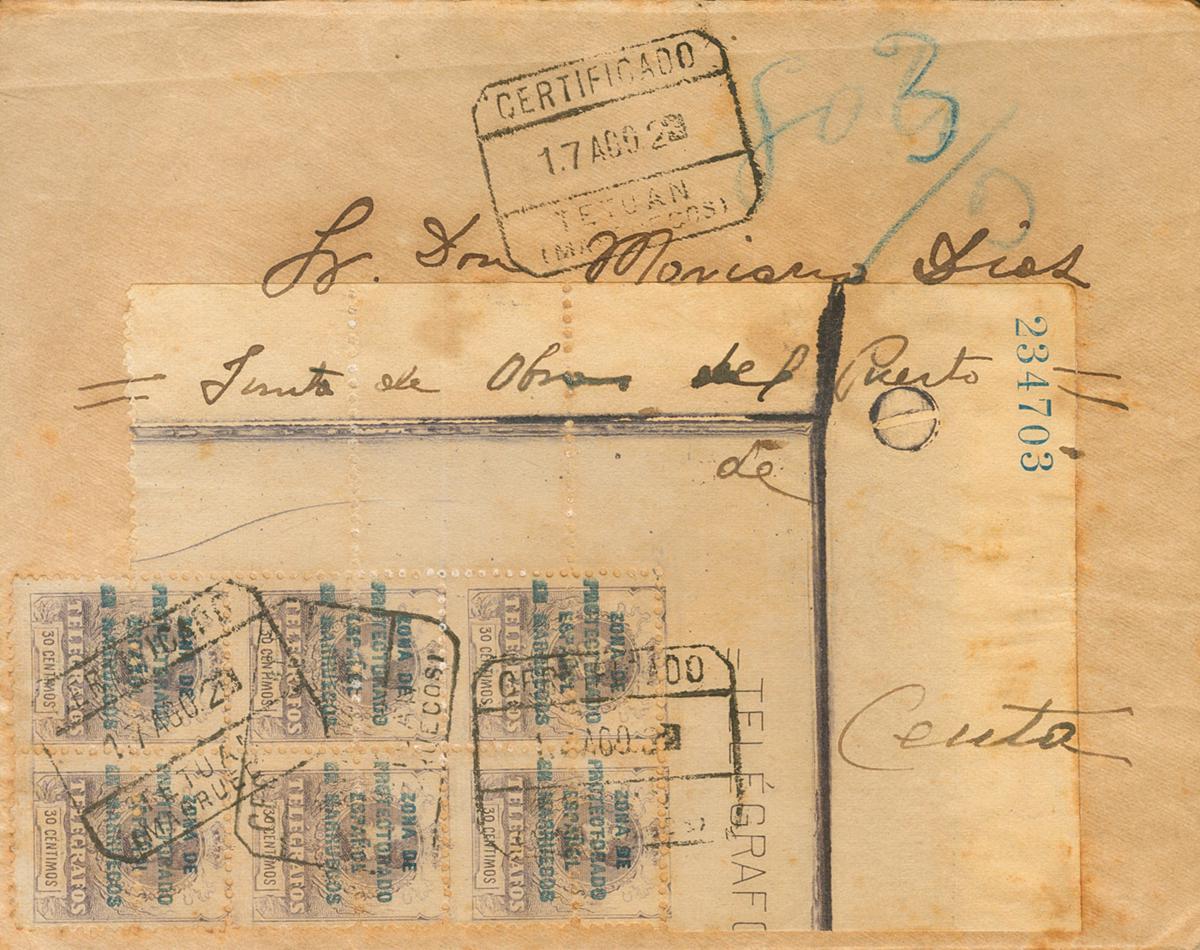 CERTIFICADO
17 AGO 23
TETUAN
(MARRUECOS)
803/2
Sr. Don Diaz
234703
Junta de Obras del Puerto
de
Ceuta
TELEGRAFOS
30 CENTIMOS
ZONA DE
PROTECTORADO
ESPAÑOL
EN MARRUECOS
TELEGRAFOS
30 CENTIMOS
ZONA DE
PROTECTORADO
ESPAÑOL
EN MARRUECOS
TELEGRAFOS
30 CENTIMOS
ZONA DE
PROTECTORADO
ESPAÑOL
EN MARRUECOS
TELEGRAFOS
30 CENTIMOS
ZONA DE
PROTECTORADO
ESPAÑOL
EN MARRUECOS
TELEGRAFOS
30 CENTIMOS
ZONA DE
PROTECTORADO
ESPAÑOL
EN MARRUECOS
TELEGRAFOS
30 CENTIMOS
ZONA DE
PROTECTORADO
ESPAÑOL
EN MARRUECOS
CERTIFICADO
17 AGO 23
TETUAN
(MARRUECOS)
CERTIFICADO
AGO 23
TELÉGRAFO